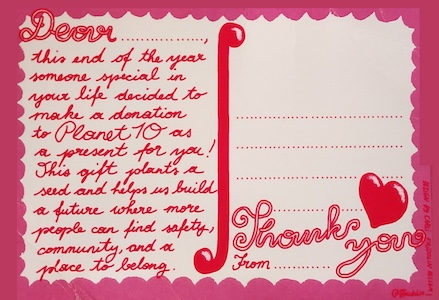 Dear ............,
this end of the year
someone special in
your life decided to
make a donation
to Planet 10 as
a present for you!
This gift plants a
seed and helps us build
a future where more
people can find safety,
community, and a
place to belong.
Thank you
From ............
DESIGN BY